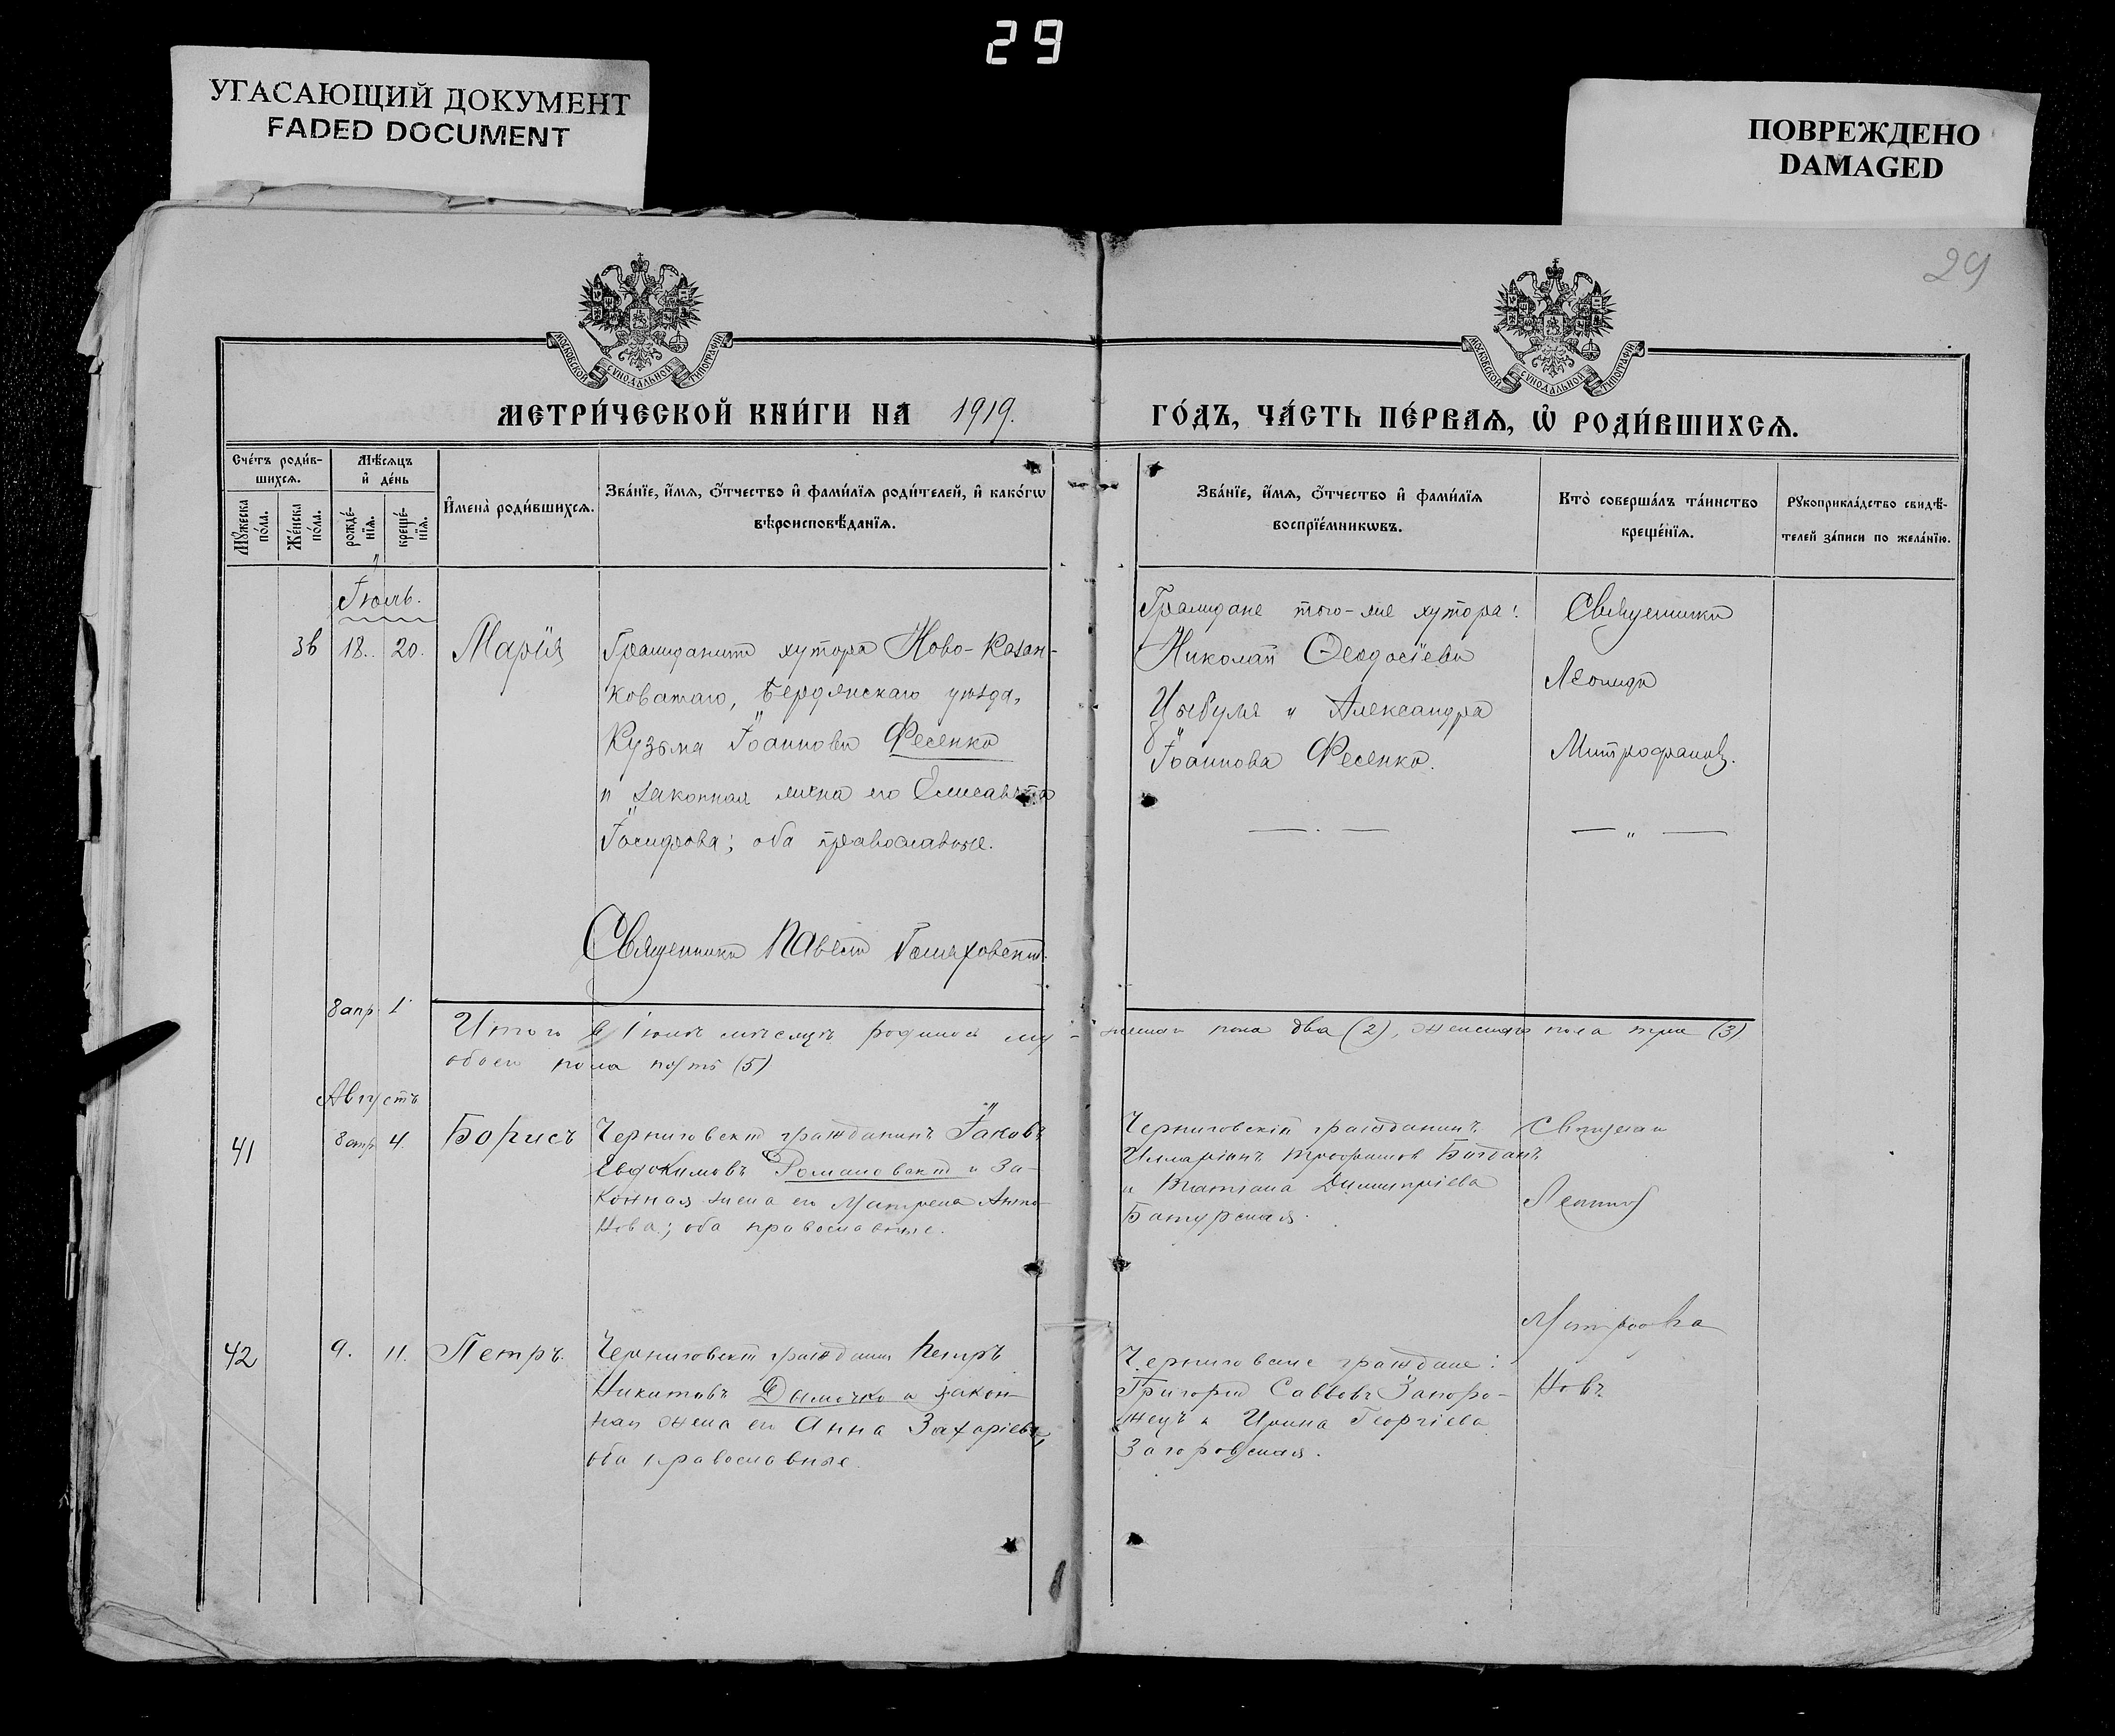 29
УГАСАЮЩИЙ ДОКУМЕНТ
FADED DOCUMENT
ПОВРЕЖДЕНО
DAMAGED
29
МОСКОВСКОЙ СУНОДАЛЬНОЙ ТИПОГРАФІИ
МОСКОВСКОЙ СУНОДАЛЬНОЙ ТИПОГРАФІИ
МЕТРИ́ЧЕСКОЙ КНИ́ГИ НА 1919.
ГО́ДЪ, ЧА́СТЬ ПЕ́РВАѦ, Ѡ҆ РОДИ́ВШИХСѦ.
Сче́тъ роди́в-
шихсѧ.
Мꙋ́жеска по́ла.
Же́нска по́ла.
Мѣ́сѧцъ
и҆ де́нь
рожде́-
нїѧ.
креще́-
нїѧ.
И҆мена̀ роди́вшихсѧ.
Зва́нїе, и҆́мѧ, ѻ҆́тчество и҆ фами́лїѧ роди́телей, и҆ како́гѡ
вѣроисповѣ́данїѧ.
Зва́нїе, и҆́мѧ, ѻ҆́тчество и҆ фами́лїѧ
воспрїе́мникѡвъ.
Кто̀ соверша́лъ та́инство
креще́нїѧ.
Рꙋкоприкла́дство свидѣ́-
телей за́писи по жела́нїю.
Іюль.
36 18. 20. Марія
Гражданинъ хутора Ново-Казан-
коватаго, Бердянскаго уѣзда,
Кузьма Іоанновъ Фесенко
и законная жена его Елисавета
Іосифова; оба православные.
Граждане того-же хутора:
Николай Ѳеодосіевъ
Цыбуля и Александра
Іоаннова Фесенко.
Священникъ
Леонидъ
Митрофановъ.
Священникъ Павелъ
8 апр 1
Итого въ Іюлѣ мѣсяцѣ родилось му-жеска пола два (2), женскаго пола три (3)
обоего пола пять (5)
Августъ
41 8 апр 4. Борисъ
Черниговскій гражданинъ Іаковъ
Евдокимовъ Романовскій и за-
конная жена его Матрена Анто-
нова; оба православные.
Черниговскій гражданинъ
Илларіонъ Трофимов
и Татіана Димитріева
Батурская.
Священ
Леонид
Митрофа
новъ
42 9. 11. Петръ.
Черниговскій гражданин Петръ
Никитовъ Дымочко и закон-
ная жена его Анна Захаріева
оба православные.
Черниговские граждане:
Григорій Саввовъ Запоро-
жецъ и Ирина Георгіева
Загоровская.